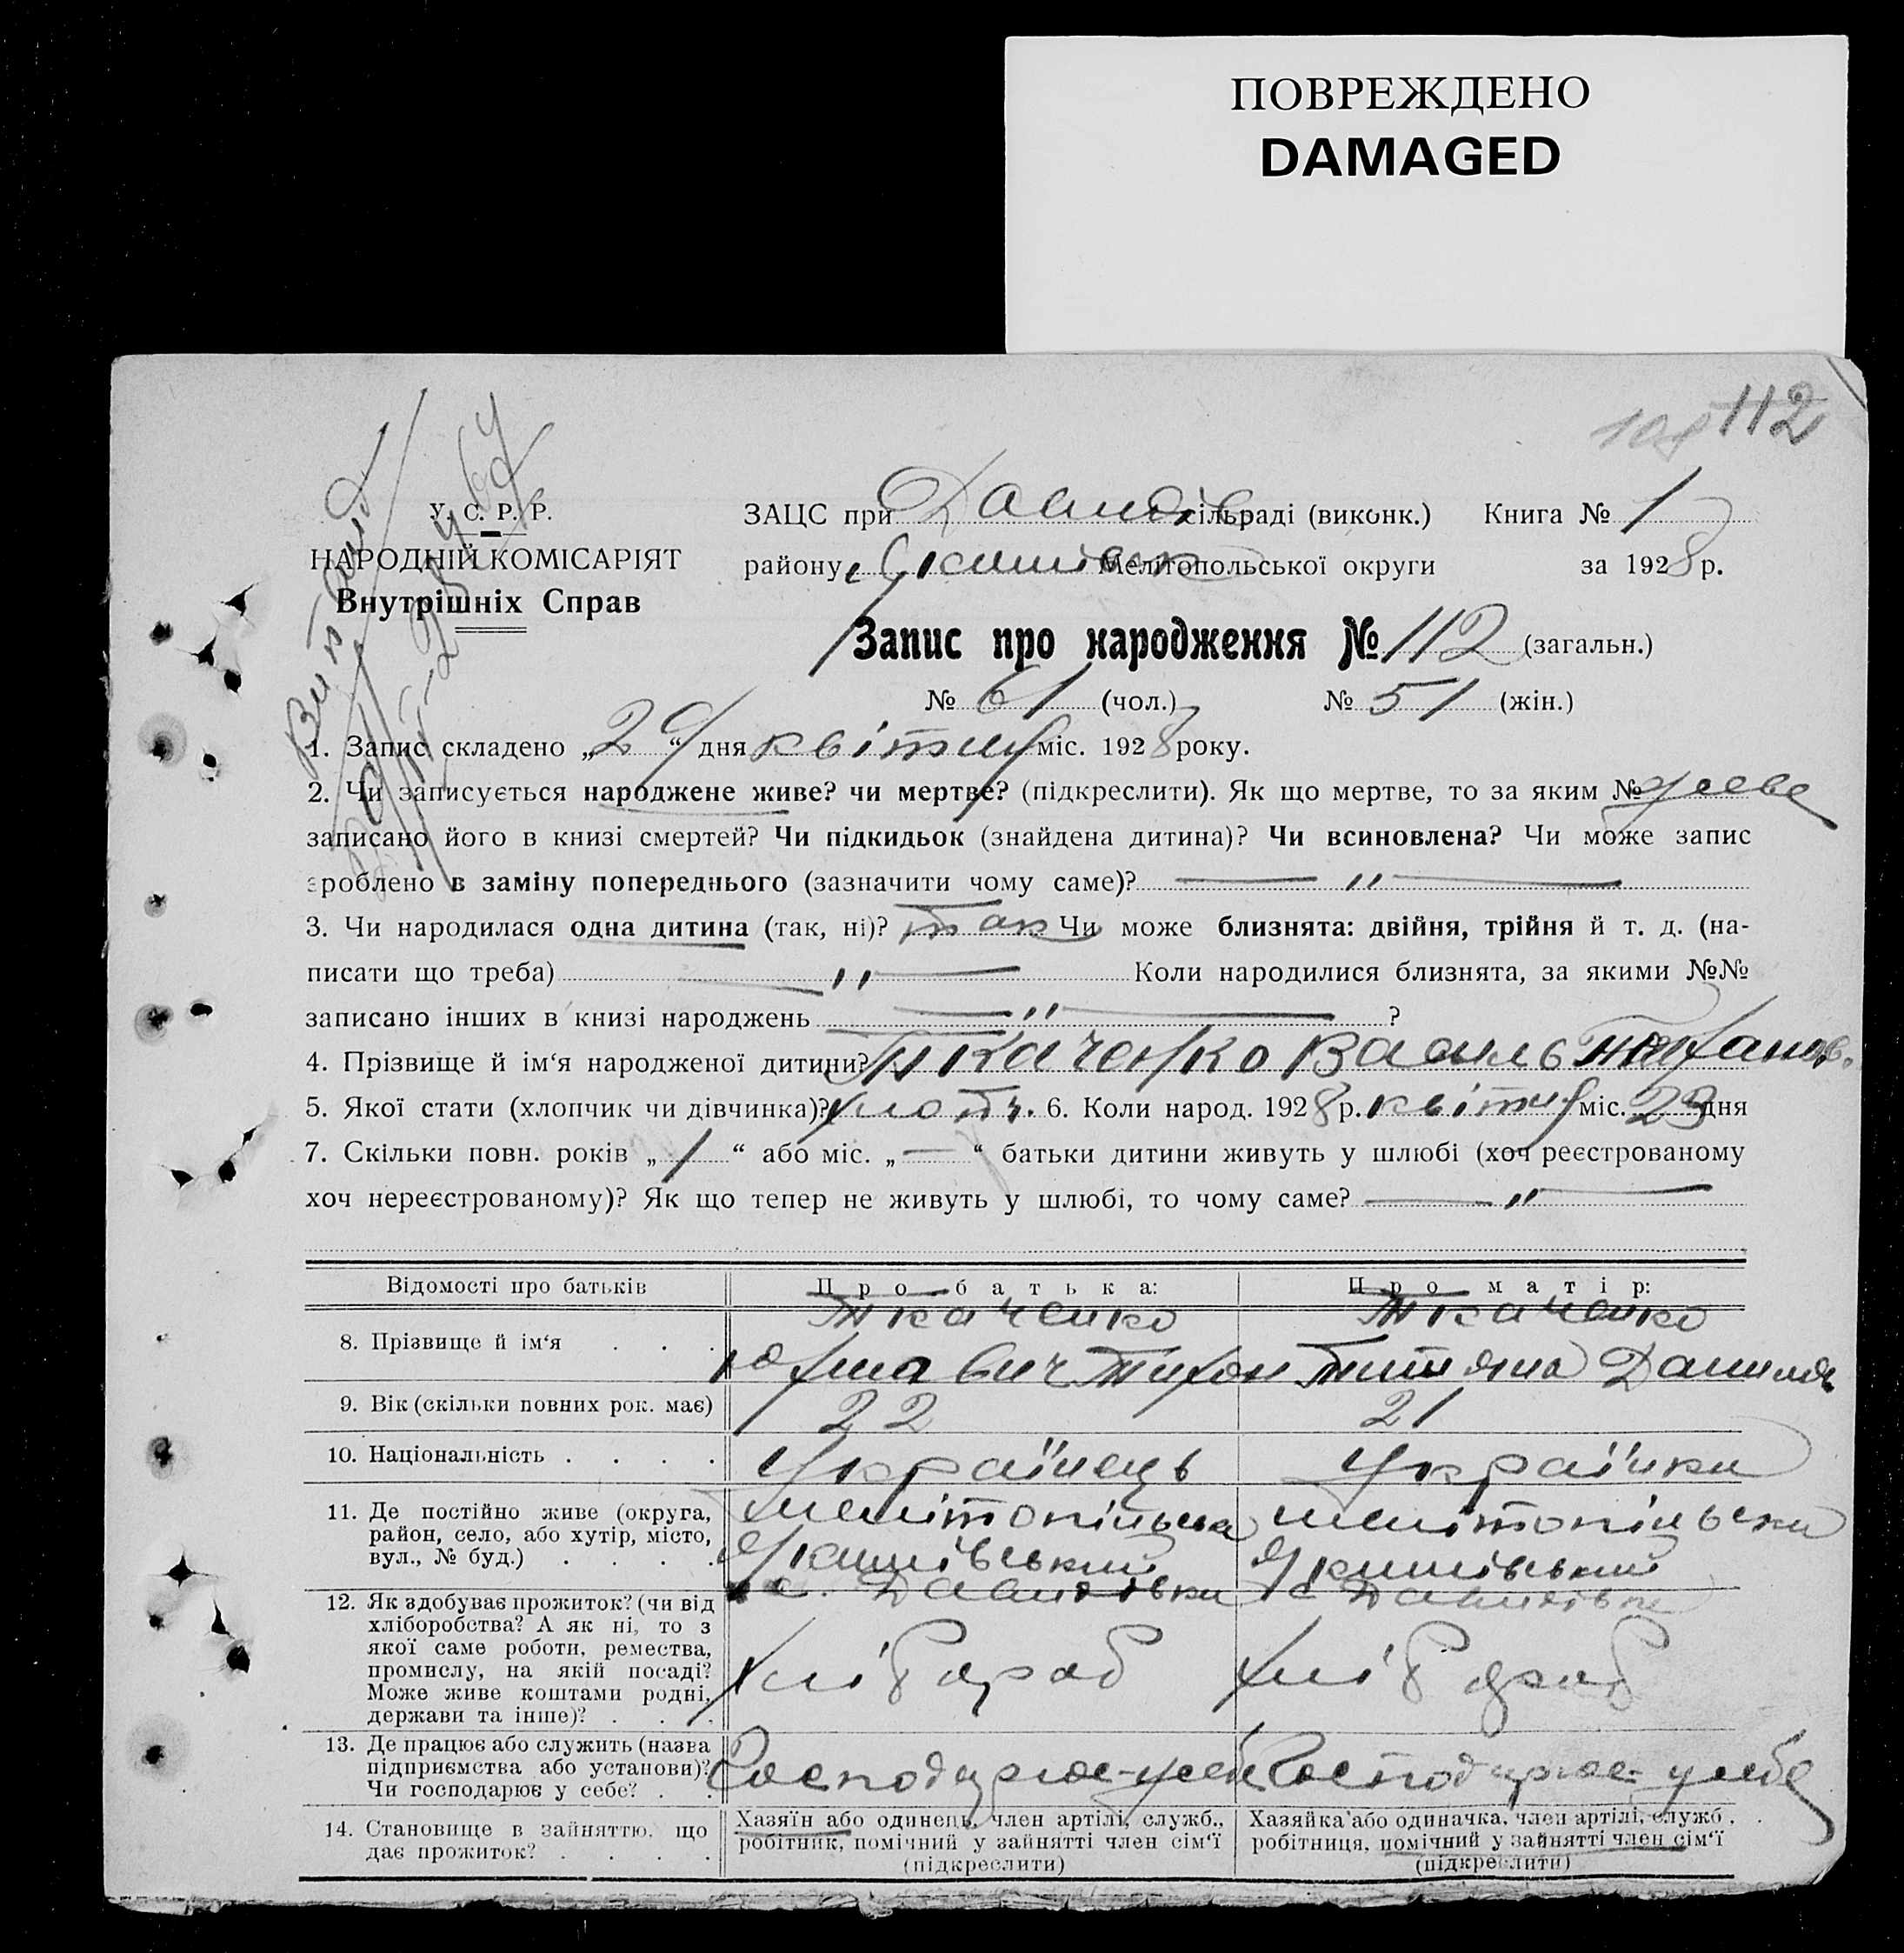 ПОВРЕЖДЕНО
DAMAGED
112
У. С. Р. Р.
НАРОДНІЙ КОМІСАРІЯТ
Внутрішніх Справ
ЗАЦС при Давидів сільраді (виконк.) Книга № 1
району Якимівск Мелітопольської округи за 1928 р.
Запис про народження № 112 (загальн.)
№ 61 (чол.) № 51 (жін.)
1. Запис складено „29“ дня квітня міс. 1928 року.
2. Чи записується народжене живе? чи мертве? (підкреслити). Як що мертве, то за яким № живе
записано його в книзі смертей? Чи підкидьок (знайдена дитина)? Чи всиновлена? Чи може запис
зроблено в заміну попереднього (зазначити чому саме)? — „ —
3. Чи народилася одна дитина (так, ні)? так Чи може близнята: двійня, трійня й т. д. (на-
писати що треба) — „ — Коли народилися близнята, за якими №№
записано інших в книзі народжень — „ — ?
4. Прізвище й ім‘я народженої дитини? Ткаченко Василь
5. Якої стати (хлопчик чи дівчинка)? хлопч. 6. Коли народ. 1928 р. квітня міс. 23 дня
7. Скільки повн. років „1“ або міс. „—“ батьки дитини живуть у шлюбі (хоч реєстрованому
хоч нереєстрованому)? Як що тепер не живуть у шлюбі, то чому саме? — „ —
Відомості про батьків Про батька: Про матір:
8. Прізвище й ім‘я . . . Ткаченко Ткаченко
Тихон Данилов
9. Вік (скільки повних рок. має) 22 21
10. Національність . . . . Українець Українка
11. Де постійно живе (округа, Мелітопільська Мелітопільська
район, село, або хутір, місто, Якимівський Якимівський
вул., № буд.) . . . . с. Давидівка с Давидівка
12. Як здобуває прожиток? (чи від
хліборобства? А як ні, то з
якої саме роботи, ремества, хлібороб хлібороб
промислу, на якій посаді?
Може живе коштами родні,
держави та інше)? . . .
13. Де працює або служить (назва
підприємства або установи)? Господарює у себе Господарює у себе
Чи господарює у себе? . .
14. Становище в зайняттю, що Хазяїн або одинець, член артілі, служб., Хазяйка або одиначка, член артілі, служб.,
дає прожиток? . . . . робітник, помічний у зайнятті член сім‘ї робітниця, помічний у зайнятті член сім‘ї
(підкреслити) (підкреслити)